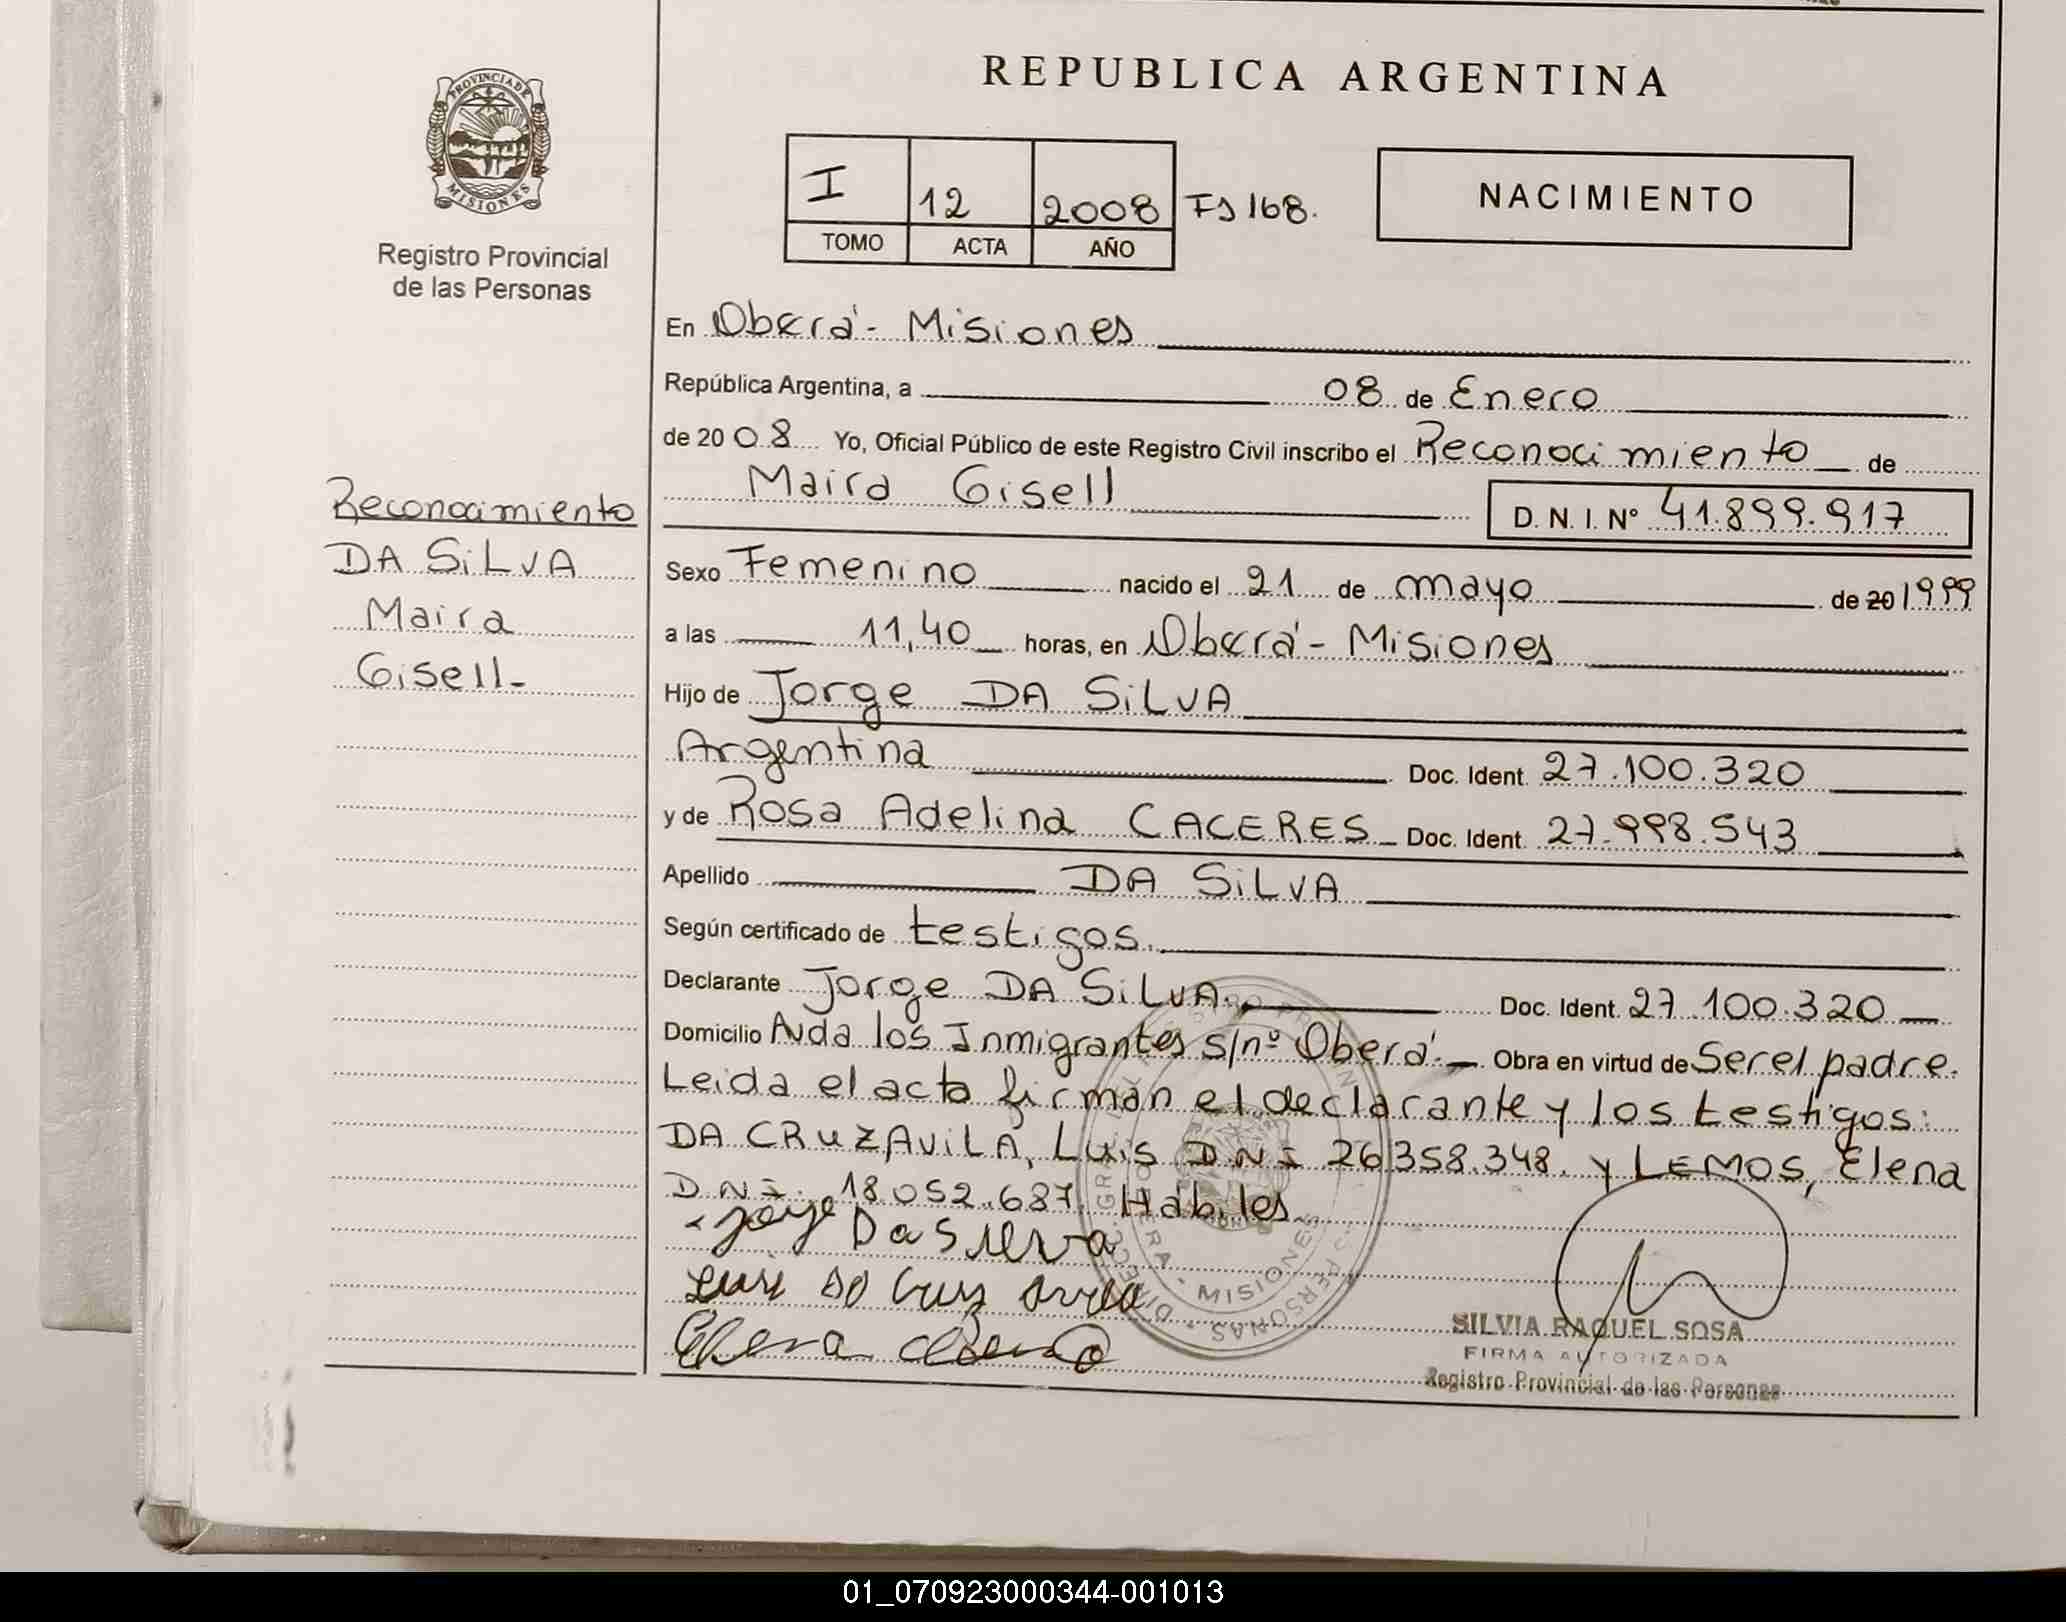 REPUBLICA ARGENTINA
PROVINCIA DE MISIONES
Registro Provincial
de las Personas
I 12 2008 Fº 168.
TOMO ACTA AÑO
NACIMIENTO
En Oberá - Misiones
República Argentina, a 08 de Enero
de 20 08 Yo, Oficial Público de este Registro Civil inscribo el Reconocimiento de
Maira Gisell D. N. I. Nº 41.899.917
Reconocimiento
DA SiLVA
Maira
Gisell-
Sexo Femenino nacido el 21 de mayo de 20 1999
a las 11,40 horas, en Oberá - Misiones
Hijo de Jorge DA SiLVA
Argentina Doc. Ident. 27.100.320
y de Rosa Adelina CACERES Doc. Ident. 27.998.543
Apellido DA SiLVA
Según certificado de testigos.
Declarante Jorge DA SiLVA. Doc. Ident. 27.100.320
Domicilio Avda los Inmigrantes s/nº Oberá. Obra en virtud de Ser el padre.
Leida el acta firman el declarante y los testigos:
DA CRUZ AViLA, Luis D.N.I 26.358.348. y LEMOS, Elena
D.N.I. 18.052.687. Hábiles
Jorge Da Silva
Luis Da Cruz Avila
Elena
MISIONES
SILVIA RAQUEL SOSA
FIRMA AUTORIZADA
Registro Provincial de las Personas
01_070923000344-001013